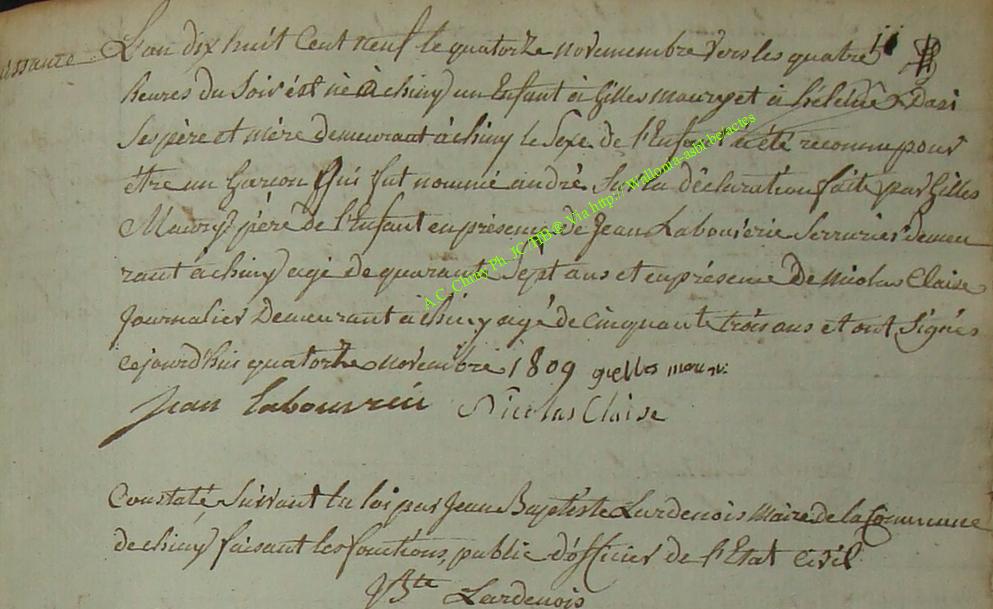 issance L'an dix huit Cent neuf le quatorze novemembre vers les quatre
heures du Soir est né à chiny un Enfant à Gilles maury et à héléne Dasi
Ses père et mère demeurant à chiny le Sexe de l'Enfant a été reconnu pour
être un Garcon qui fut nommé andré Sur la déclaration faite par Gilles
Maury père de l'Enfant en présence de Jean Labouverie Serrurier demeu
rant à chiny agé de quarant Sept ans et en présence De nicolas Claise
Journalier Demeurant à chiny agé de cinquante trois ans et ont Signés
cejourd'hui quatorze novembre 1809 gielles
Jean Labouvrie Nicolas Claise
Constaté Suivant la loi par Jean Baptiste Lardenois Maire de la Commune
de chiny faisant les fonctions, public d'officier de l'Etat civil
JBte Lardenois
A.C. Chiny Ph. JC HB @ Via http:// Wallonia-asbl.be/actes